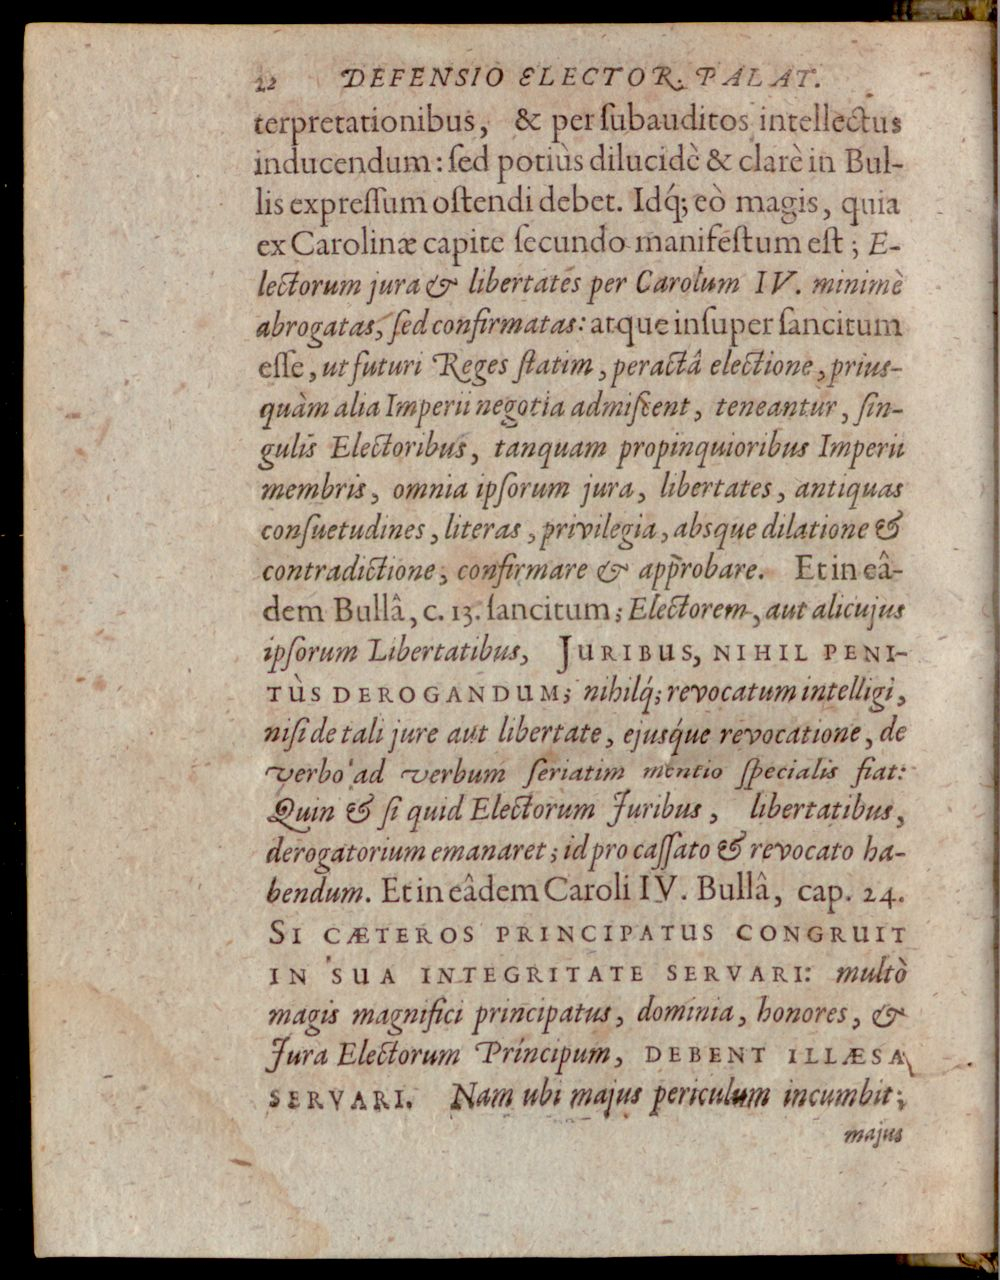 22 DEFENSIO ELECTOR. PALAT.
terpretationibus, & per subauditos intellectus
inducendum: sed potiùs dilucidè & clarè in Bul-
lis expressum ostendi debet. Idq́; eò magis, quia
ex Carolinæ capite secundo manifestum est; E-
lectorum jura & libertates per Carolum IV. minimè
abrogatas, sed confirmatas: atque insuper sancitum
esse, ut futuri Reges statim, peractâ electione, prius-
quàm alia Imperii negotia admiscent, teneantur, sin-
gulis Electoribus, tanquam propinquioribus Imperii
membris, omnia ipsorum jura, libertates, antiquas
consuetudines, literas, privilegia, absque dilatione &
contradictione, confirmare & approbare. Et in eâ-
dem Bullâ, c. 13. sancitum; Electorem, aut alicujus
ipsorum Libertatibus, JURIBUS, NIHIL PENI-
TÙS DEROGANDUM; nihilq́; revocatum intelligi,
nisi de tali jure aut libertate, ejusq́ue revocatione, de
verbo ad verbum seriatim mentio specialis fiat:
Quin & si quid Electorum Juribus, libertatibus,
derogatorium emanaret; id pro cassato & revocato ha-
bendum. Et in eâdem Caroli IV. Bullâ, cap. 24.
SI CÆTEROS PRINCIPATUS CONGRUIT
IN SUA INTEGRITATE SERVARI: multò
magis magnifici principatus, dominia, honores, &
Jura Electorum Príncipum, DEBENT ILLÆSA
SERVARI. Nam ubi majus periculum incumbit;
majus